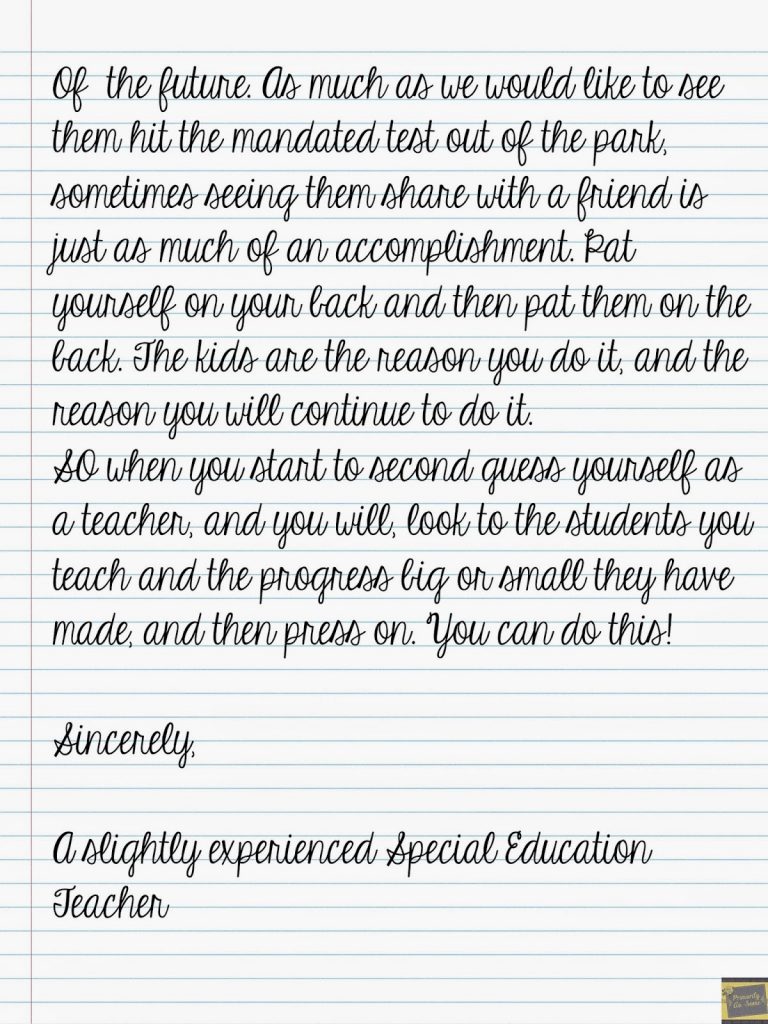 Of the future. As much as we would like to see
them hit the mandated test out of the park,
sometimes seeing them share with a friend is
just as much of an accomplishment. Pat
yourself on your back and then pat them on the
back. The kids are the reason you do it, and the
reason you will continue to do it.
SO when you start to second guess yourself as
a teacher, and you will, look to the students you
teach and the progress big or small they have
made, and then press on. You can do this!
Sincerely,
A slightly experienced Special Education
Teacher